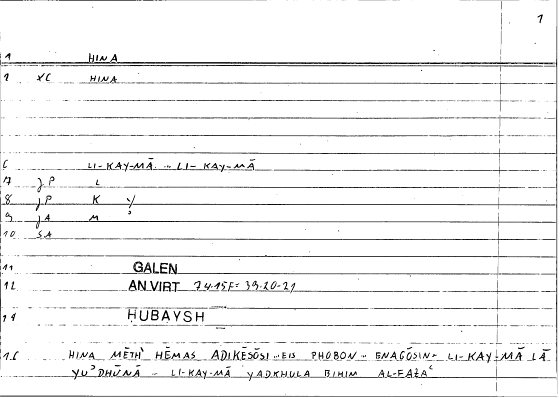 1
1 HINA
1 XC HINA
6 LI-KAY-MĀ ... LI-KAY-MĀ
7 J.P L
8 J.P K Y
9 JA M ʾ
10 SA
11 GALEN
12 AN.VIRT 74.15F = 39.20-21
14 HUBAYSH
16 HINA MĒTH' HĒMAS ADIKĒSŌSI ... EIS PHOBON ... ENAGŌSIN = LI-KAY-MĀ LĀ
YUʾDHŪNĀ ... LI-KAY-MĀ YADKHULA BIHIM AL-FAZAʿ